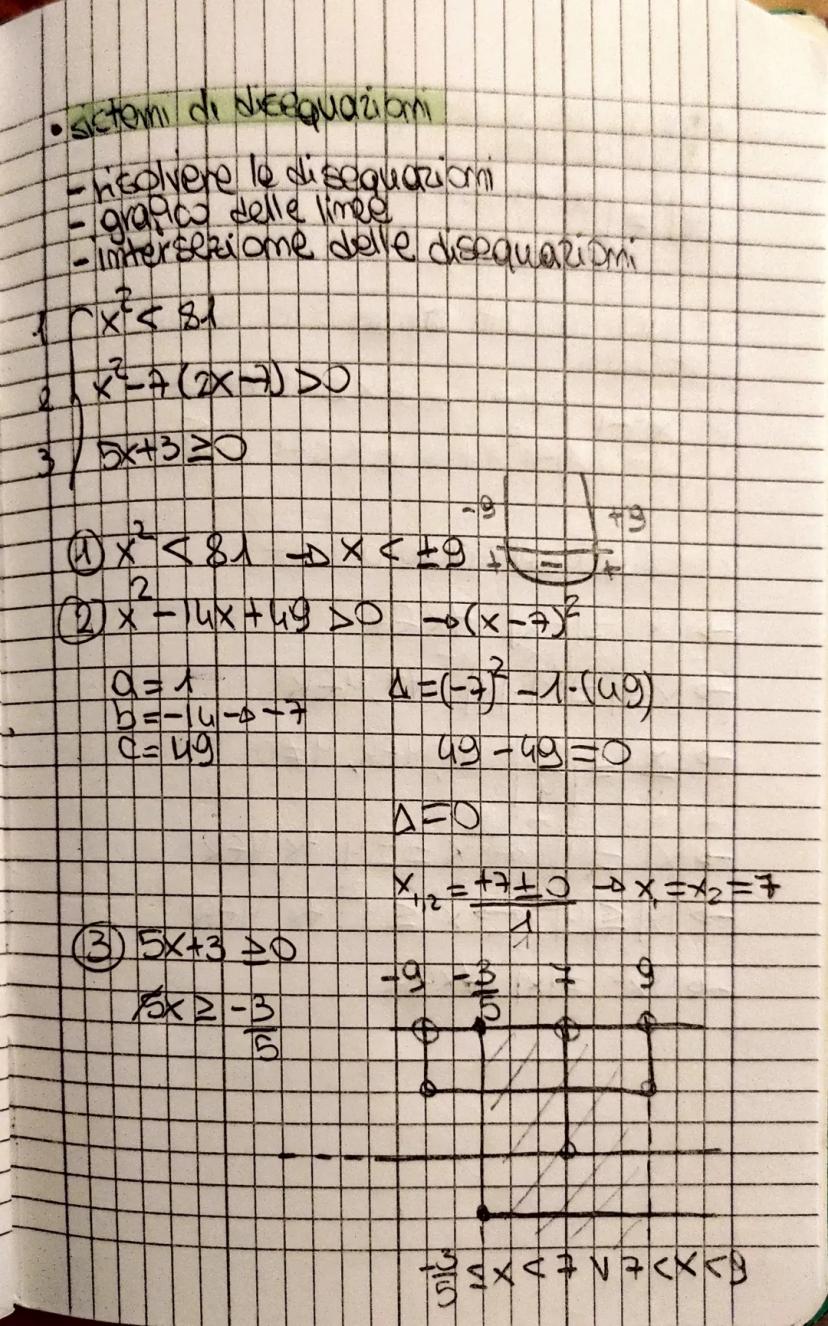 • sistemi di disequazioni
- risolvere le disequazioni
- grafico delle linee
- intersezione delle disequazioni
1 { x² < 81
2 x² - 7 (2x - 7) > 0
3 5x + 3 ≥ 0
① x² < 81 → x < ±9
-9 +9
+ - +
② x² - 14x + 49 > 0 → (x - 7)²
a = 1 Δ = (-7)² - 1 · (49)
b = -14 → -7
c = 49 49 - 49 = 0
Δ = 0
x₁,₂ = +7 ± 0 / 1 → x₁ = x₂ = 7
③ 5x + 3 ≥ 0
-9 -3/5 7 9
5x ≥ -3/5
-3/5 ≤ x < 7 ∨ 7 < x < 9